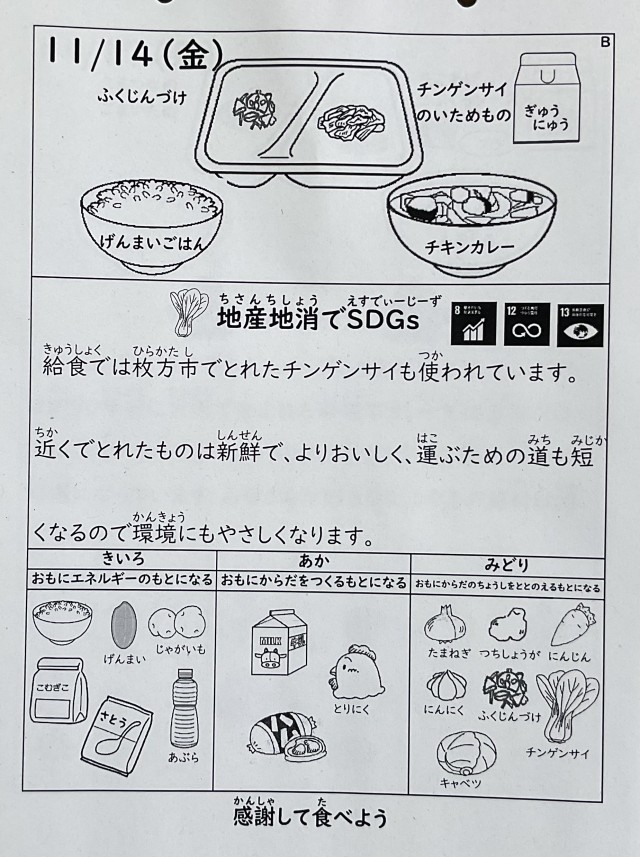 B
11/14(金)
ふくじんづけ
チンゲンサイ
のいためもの
ぎゅう
にゅう
げんまいごはん
チキンカレー
ちさんちしょう えすでぃーじーず
地産地消でSDGs
8
12
13
きゅうしょく ひらかたし つか
給食では枚方市でとれたチンゲンサイも使われています。
ちか しんせん はこ みち みじか
近くでとれたものは新鮮で、よりおいしく、運ぶための道も短
かんきょう
くなるので環境にもやさしくなります。
きいろ あか みどり
おもにエネルギーのもとになる おもにからだをつくるもとになる おもにからだのちょうしをととのえるもとになる
げんまい
じゃがいも
こむぎこ
さとう
あぶら
MILK
とりにく
たまねぎ つちしょうが にんじん
にんにく ふくじんづけ
チンゲンサイ
キャベツ
かんしゃ た
感謝して食べよう